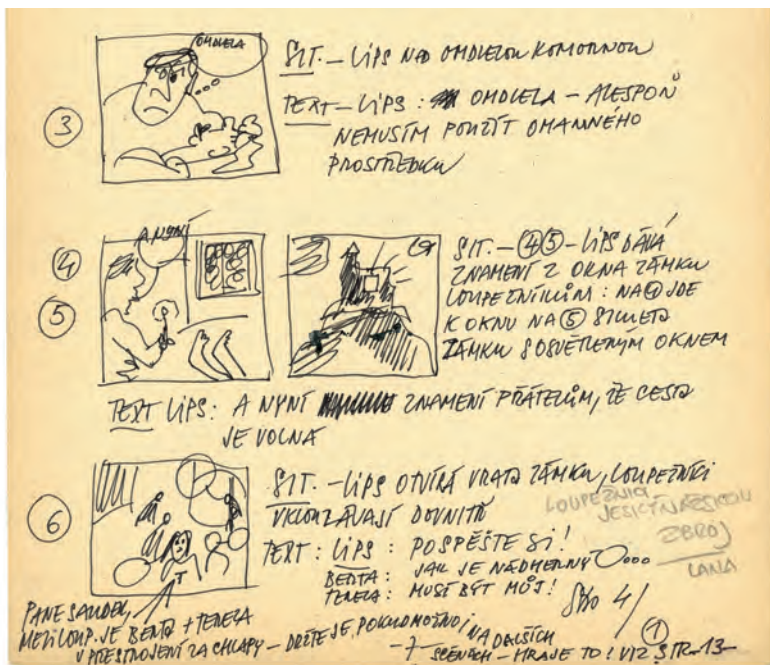 3
OMDLELA
SIT. – LIPS NAD OMDLELOU KOMORNOU
TEXT – LIPS : OMDLELA – ALESPOŇ
NEMUSÍM POUŽÍT OMAMNÉHO
PROSTŘEDKU
4
5
A NYNÍ
SIT. – 4 5 – LIPS DÁVÁ
ZNAMENÍ Z OKNA ZÁMKU
LOUPEŽNÍKŮM : NA 4 JDE
K OKNU NA 5 SILUETA
ZÁMKU S OSVĚTLENÝM OKNEM
TEXT LIPS : A NYNÍ ZNAMENÍ PŘÁTELŮM, ŽE CESTA
JE VOLNÁ
6
SIT. – LIPS OTVÍRÁ VRATA ZÁMKU, LOUPEŽNÍCI
VKLOUZÁVAJÍ DOVNITŘ
LOUPEŽNICI
ZBROJ
LANA
TEXT : LIPS : POSPĚŠTE SI !
BERTA : JAK JE NÁDHERNÝ
TEREZA : MUSÍ BÝT MŮJ !
PANE SAUDEK,
MEZI LOUP. JE BERTA + TEREZA
V PŘESTROJENÍ ZA CHLAPY – DRŽTE JE, POKUD MOŽNO I NA DALŠÍCH
SCÉNÁCH – HRAJE TO ! VIZ STR. 13
4/
1
–7–